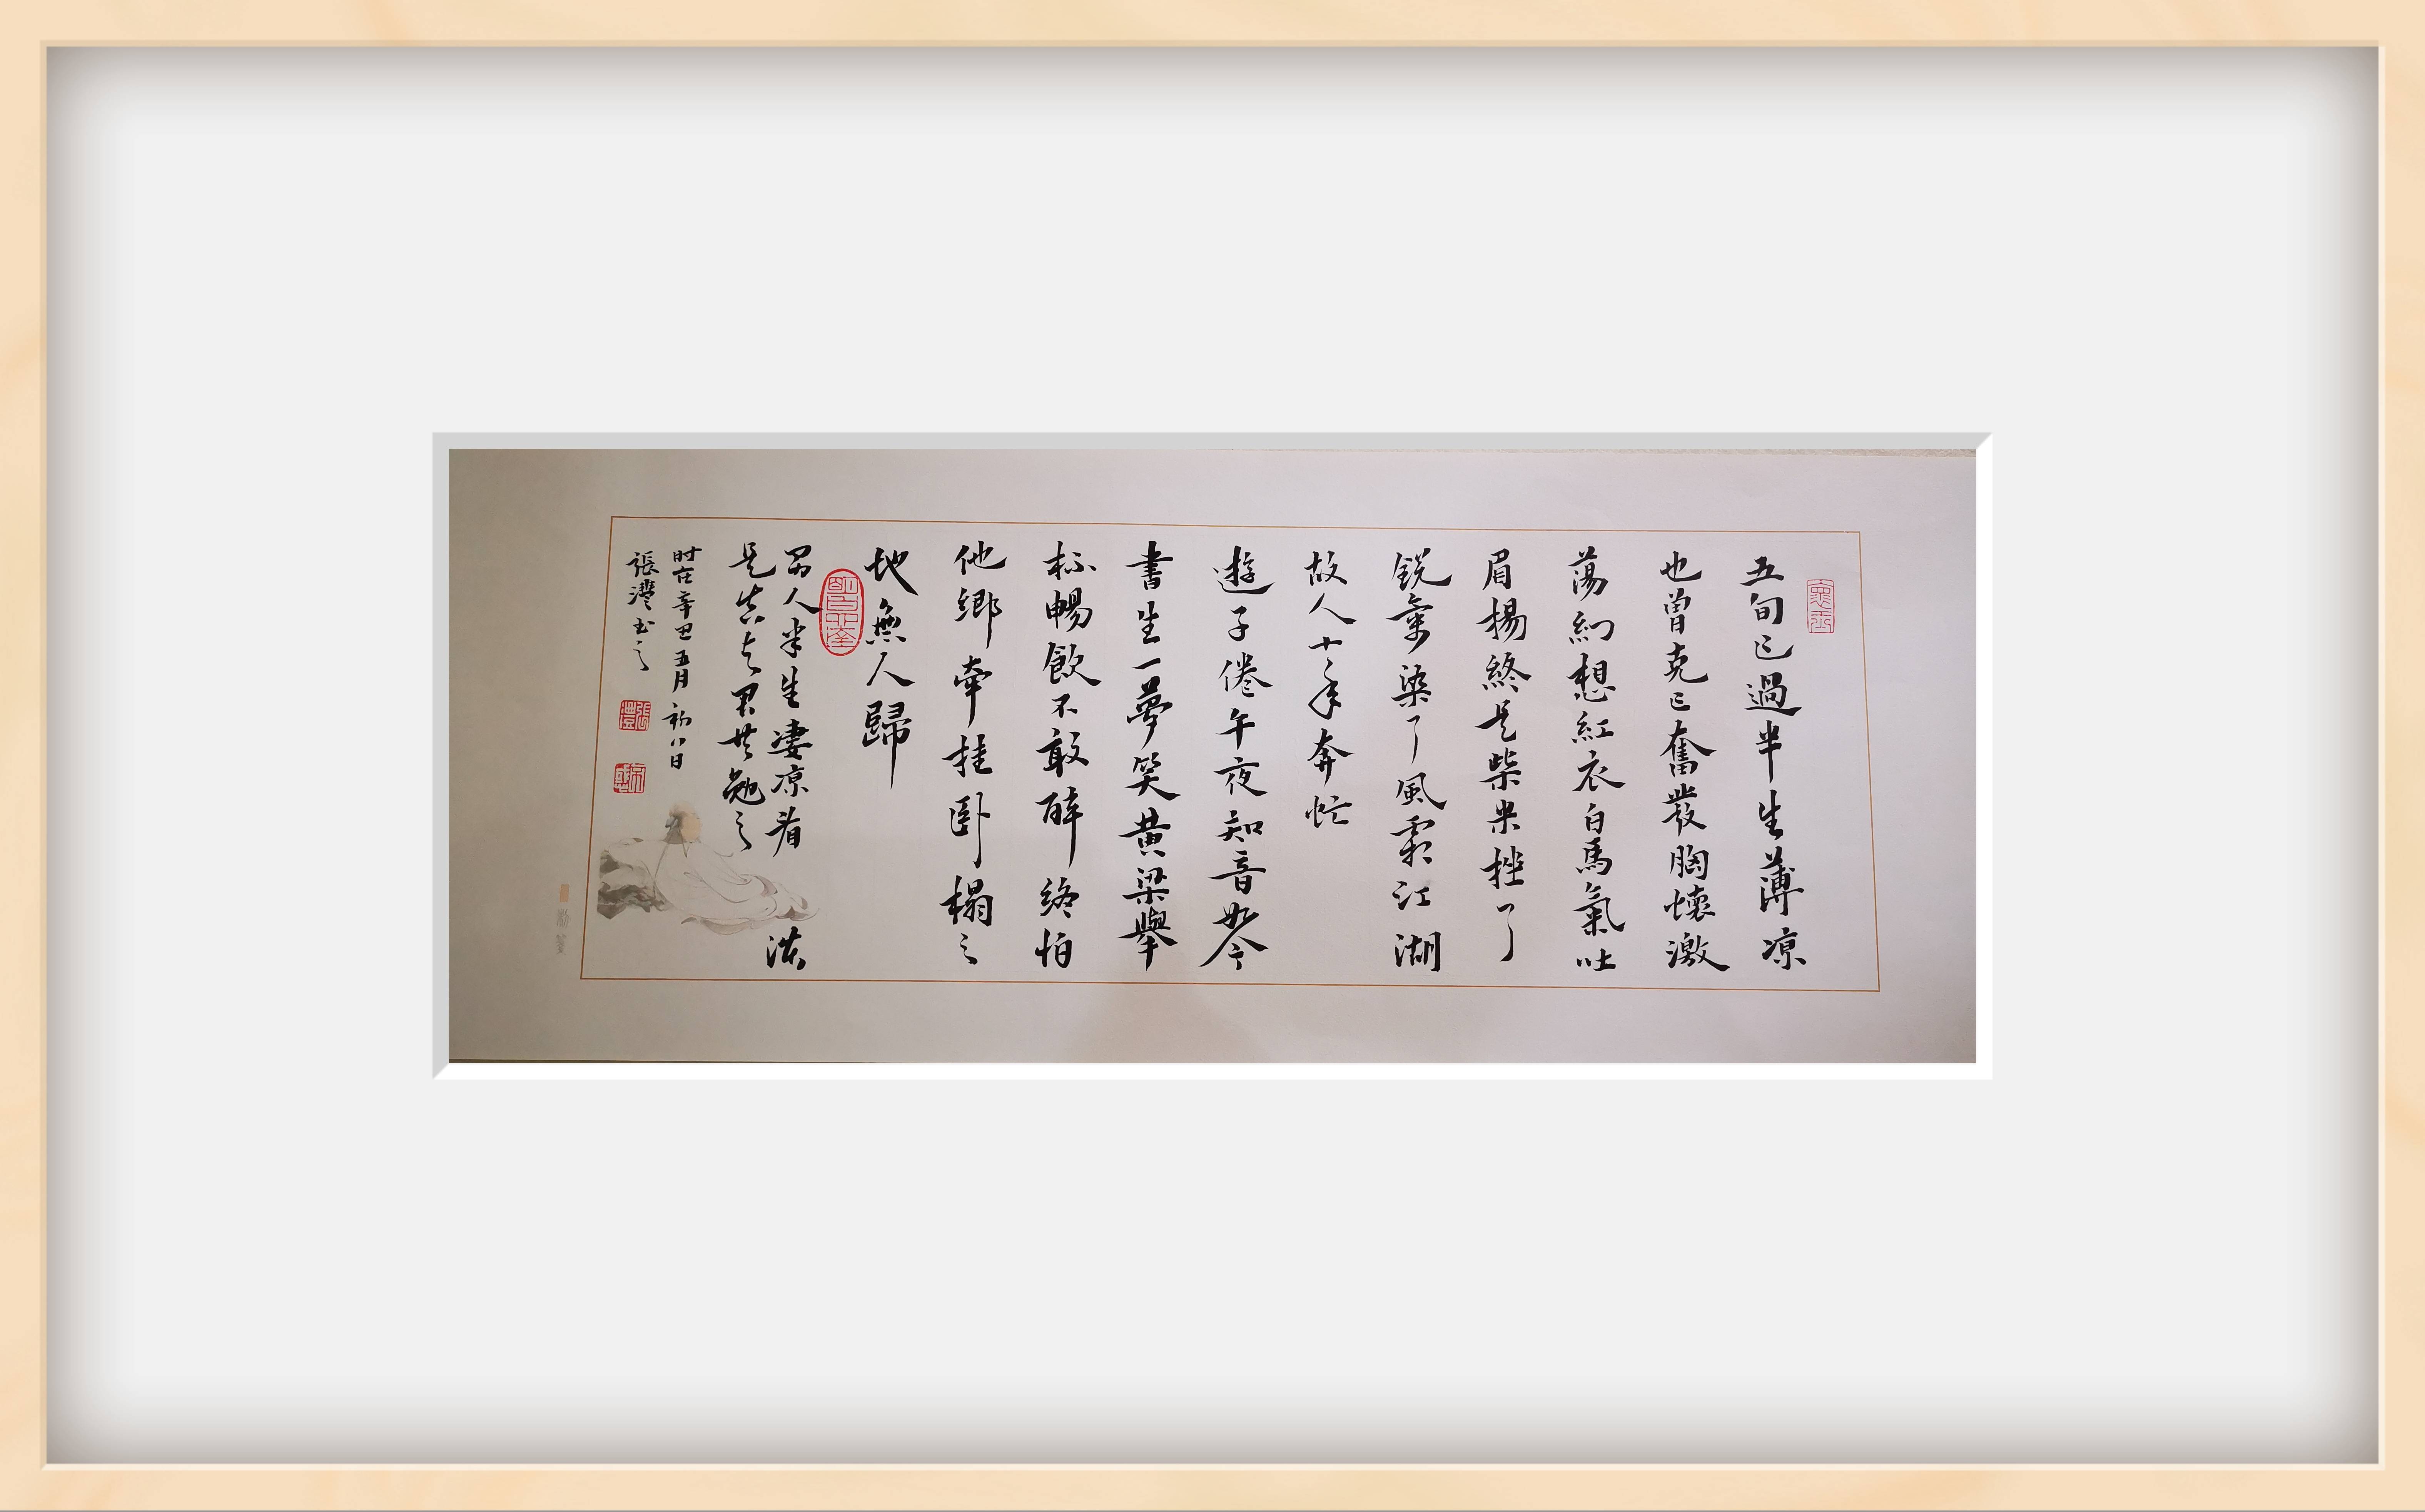 五旬已過半生薄凉
也曾克己奮發胸懷激
蕩幻想紅衣白馬氣吐
眉揚終是柴米挫了
銳氣染了風霜江湖
故人十年奔忙
遊子倦午夜知音如今
書生一夢笑黄粱舉
杯暢飲不敢醉終怕
他鄉牽挂卧榻之
地無人歸
男人半生淒凉看淡
是真與君共勉之
时在辛丑五月初八日
張灃书之